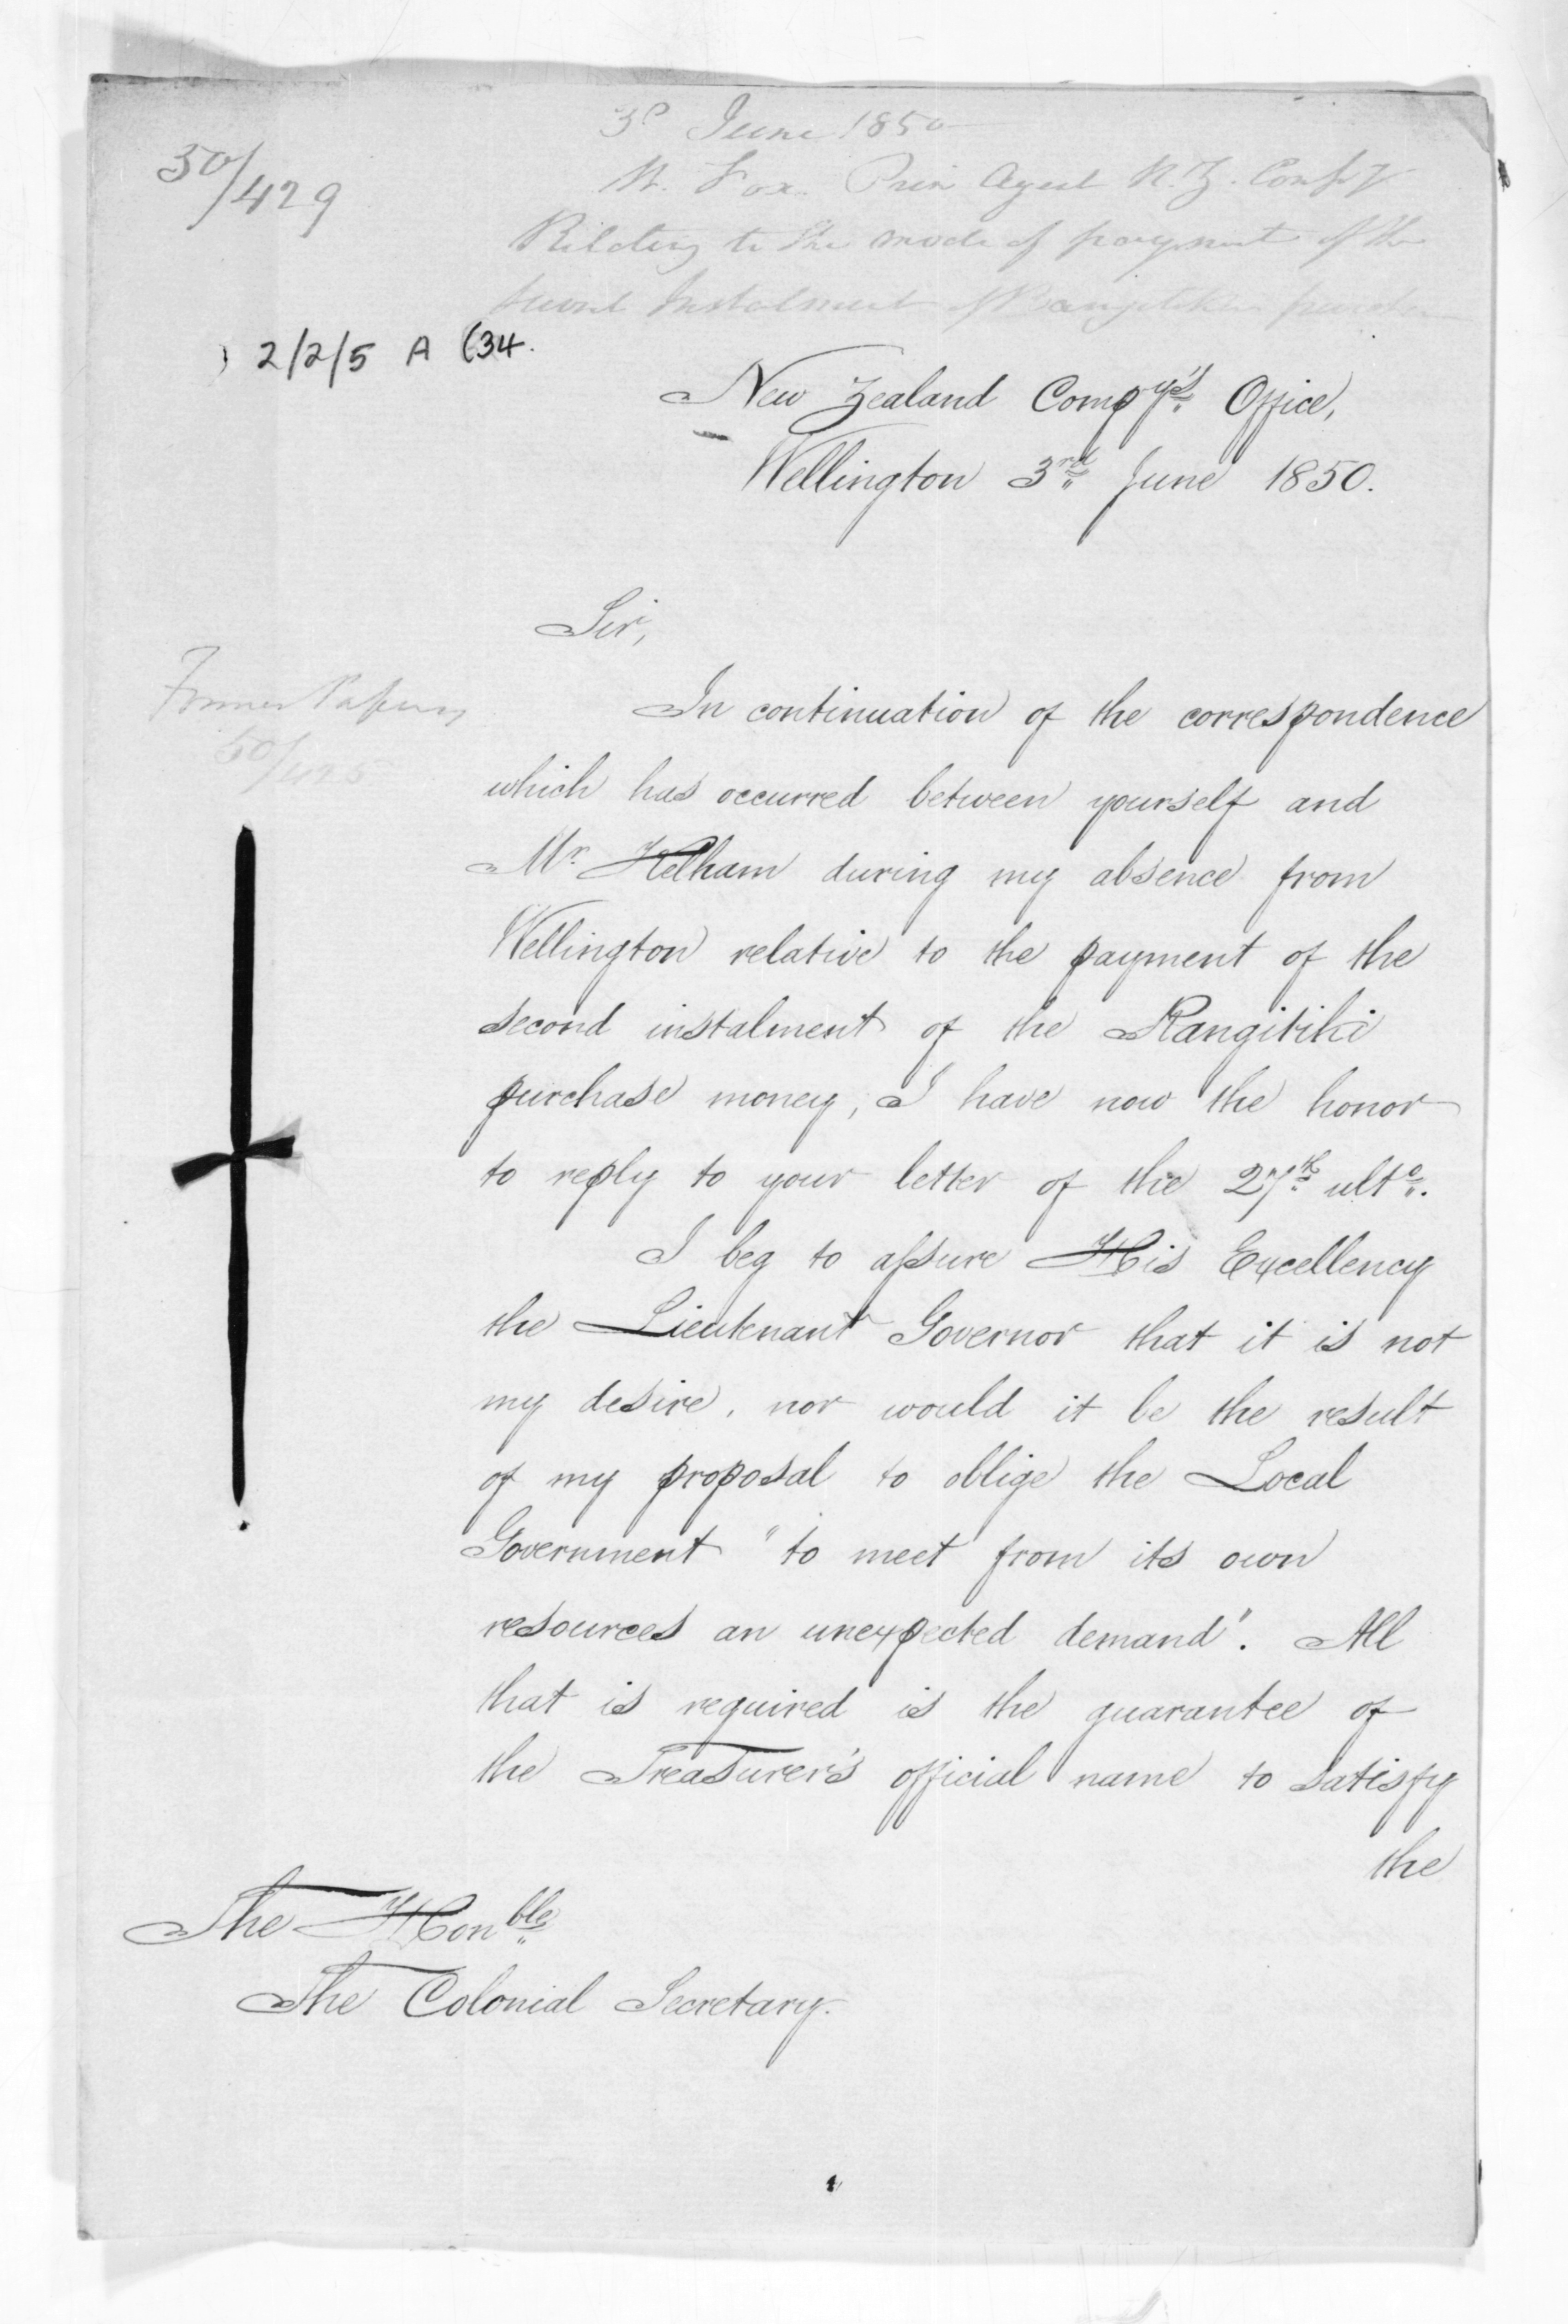 50/429
3d June 1850
W. Fox. Prin Agent N.Z. Compy
Relating to the mode of payment of the
second Instalment of Rangitikei purchase
2/2/5 A (34.
New Zealand Compy's Office,
Wellington 3rd June 1850.
Sir,
Former Papers
50/425
In continuation of the correspondence
which has occurred between yourself and
Mr Kelham during my absence from
Wellington relative to the payment of the
second instalment of the Rangitiki
purchase money, I have now the honor
to reply to your letter of the 27th ulto.
I beg to assure His Excellency
the Lieutenant Governor that it is not
my desire, nor would it be the result
of my proposal to oblige the Local
Government "to meet from its own
resources an unexpected demand". All
that is required is the guarantee of
the Treasurer's official name to satisfy
the
The Honble
The Colonial Secretary.